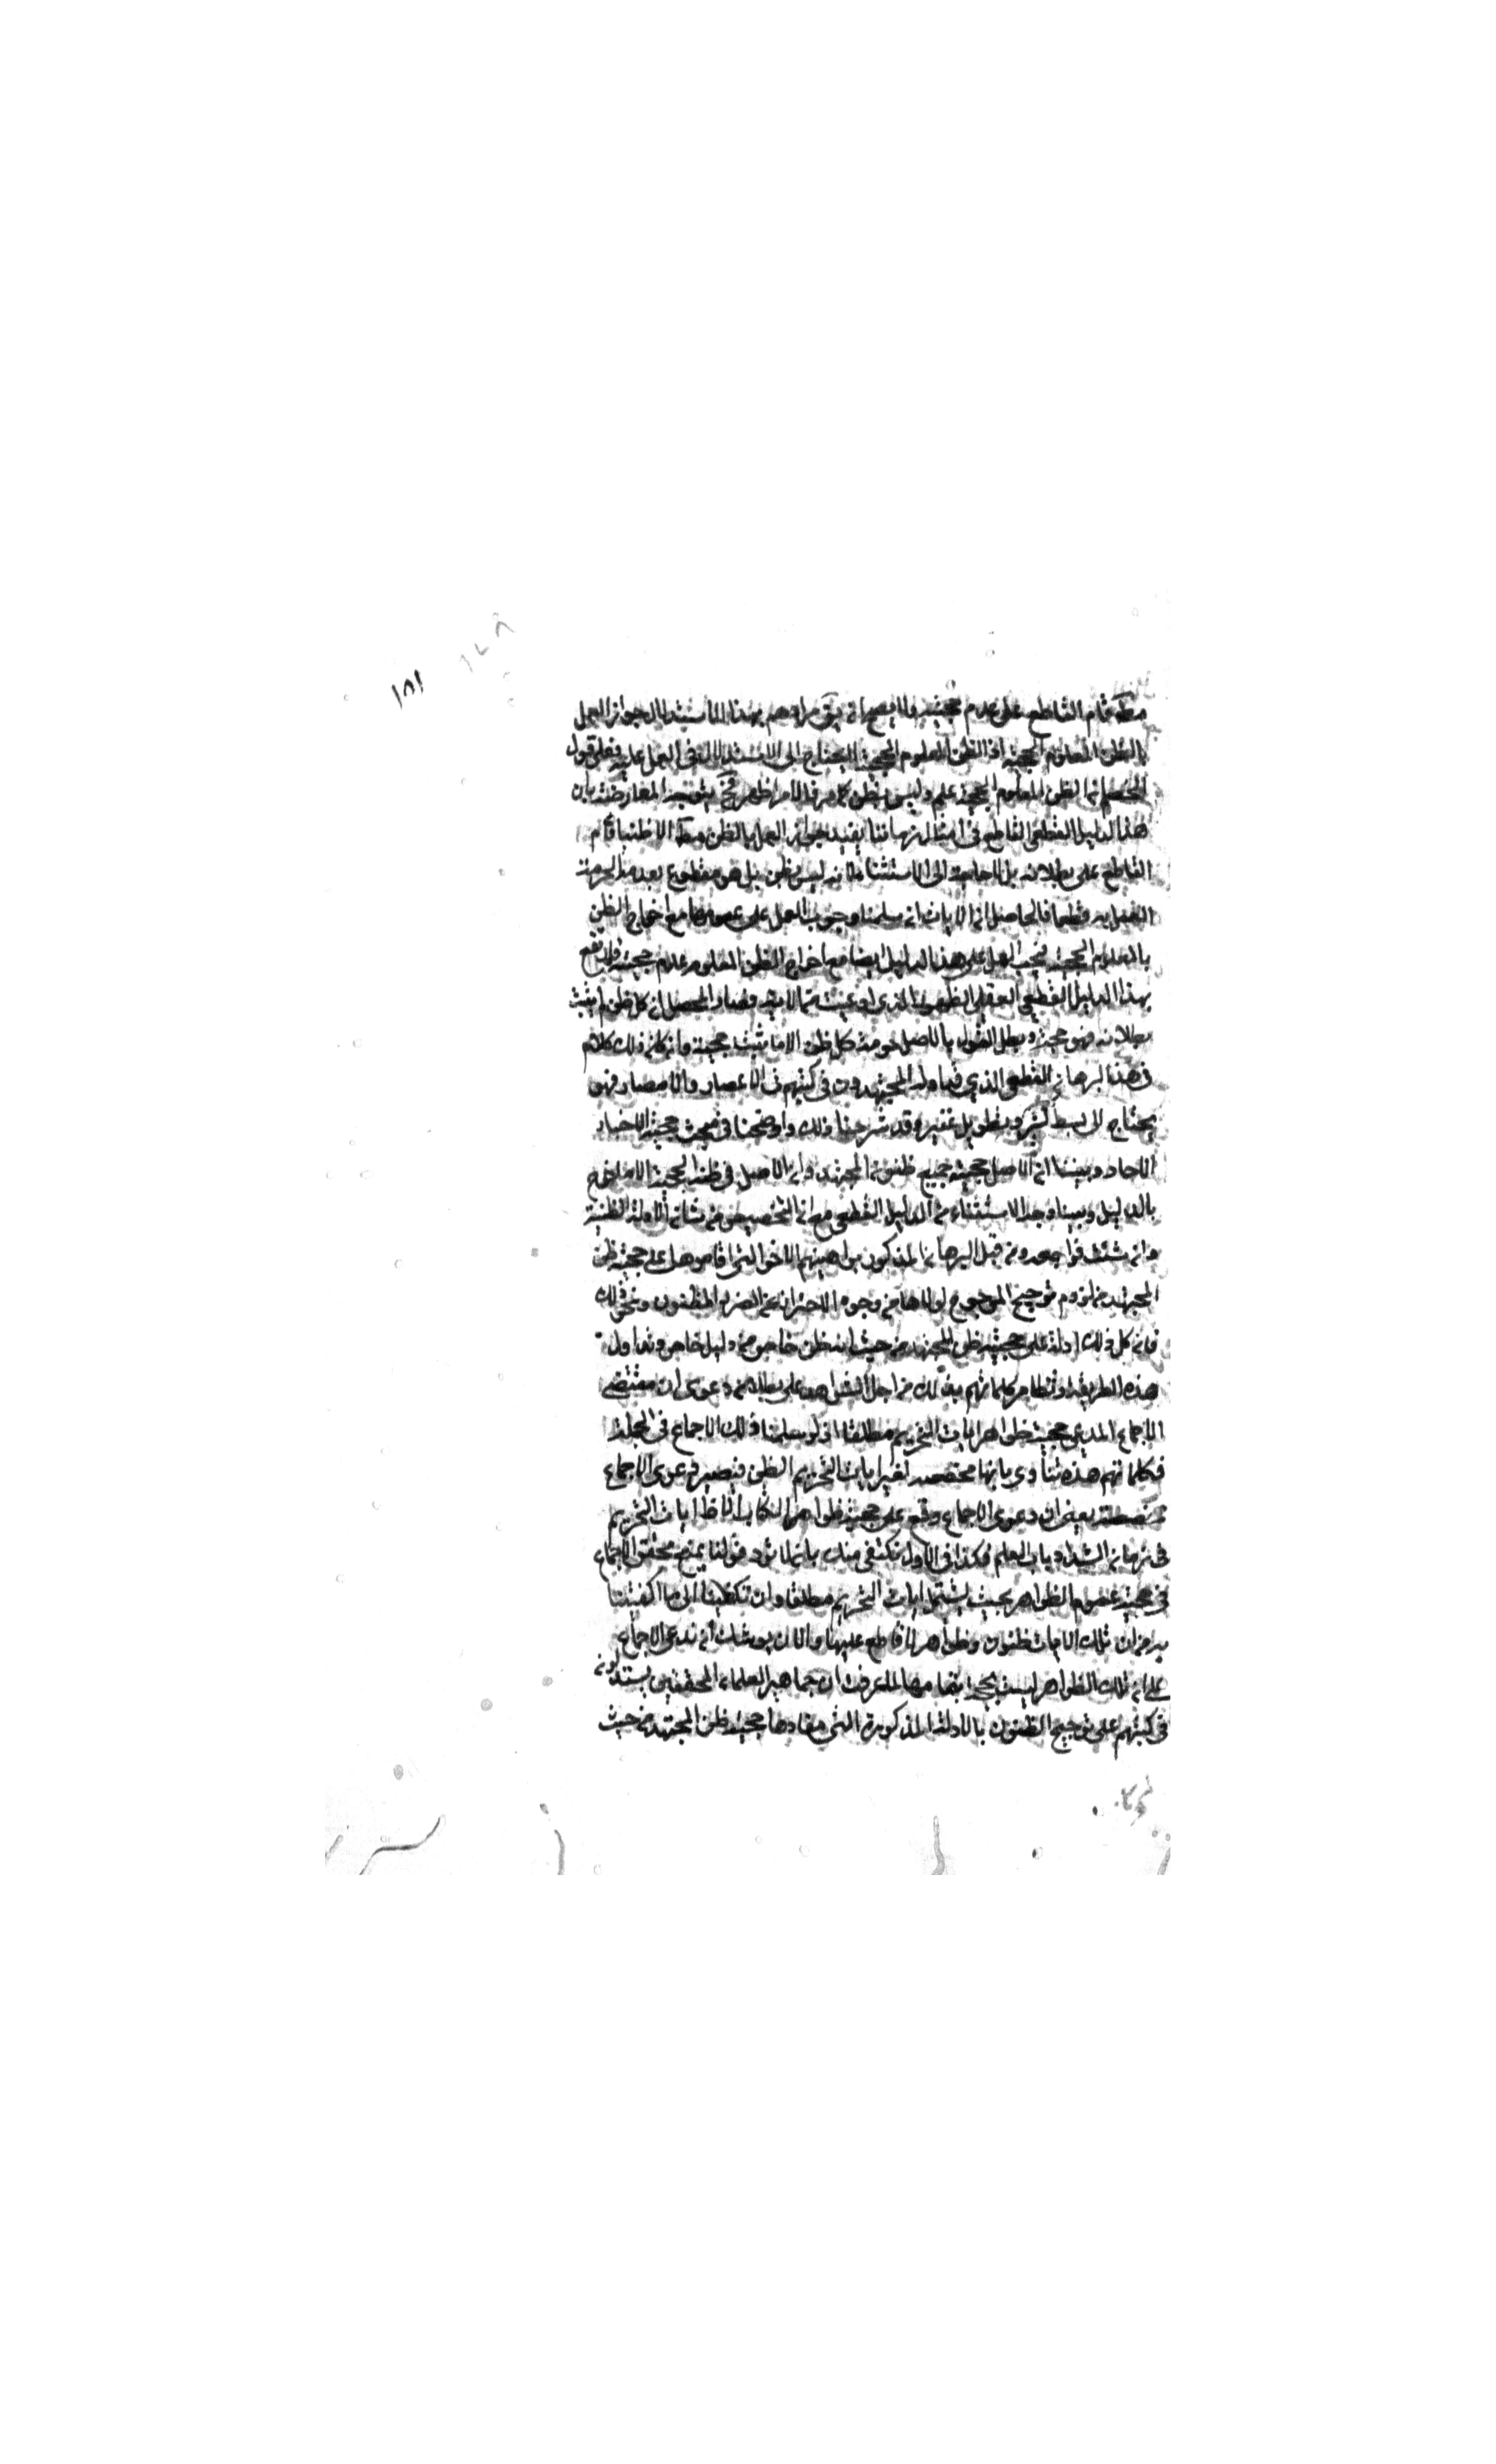 ١٨١
قام القاطع على عدم حجيته ولا يصح ان يق مرادهم بهذا الاستدلال جواز العمل
بالظن المعلوم الحجية اذ الظن المعلوم الحجية لا يحتاج الى الاستدلال في العمل عليه وعلى قول
الخصم ان الظن المعلوم الحجية علم وليس بظن كما مر فالامر اظهر فح يتوجه المعارضة بان
هذا الدليل القطعي القاطع في امثال زماننا يفيد جواز العمل بالظن الا ظنا قام
القاطع على بطلانه بل لا حاجة الى الاستثناء لانه ليس بظن بل هو مقطوع بعدمه لحرمة
العمل به قطعا فالحاصل ان الايات ان سلمنا وجوب العمل على عمومها مع اخراج الظن
بالمعلوم الحجية فيجب العمل على هذا الدليل ايضا مع اخراج الظن المعلوم عدم حجيته
بهذا الدليل القطعي العقلي الظهور الذي ادعيت وصار المحصل ان كل ظن لم يثبت
بطلانه فهو حجة وبطل القول بالاصل حرمة كل ظن الا ما يثبت حجيته وان كان ذلك كلام
في هذا البرهان القطعي الذي تداوله المجتهدون في كتبهم في الاعصار والامصار فهو
يحتاج الى بسط كثير وتطويل غفير وقد شرحنا ذلك واوضحنا في مبحث حجية الاخبار
الاحاد وبينا ان الاصل حجية جميع ظنون المجتهد وان الاصل في ظنه الحجية الا ما اخرج
بالدليل وبينا وجه الاستثناء من الدليل القطعي مع ان التخصيص من شان الادلة الظنية
وان شئت من قبل البرهان المذكور براهينهم الاخر التي اقاموها على حجية ظن
المجتهد من لزوم ترجيح المرجوح لولاها ومن وجوه الاحتراز عن الضرر المظنون ونحو ذلك
فان كل ذلك ادلة على حجية ظن المجتهد من حيث انه ظن خاص من دليل خاص وتداول
هذه الطريقة وتظافر كلماتهم بذلك من اجل الشواهد على بطلان دعوى ان مقتضى
الاجماع المدعى حجية ظواهر ايات التحريم مطلقا اذ لو سلمنا ذلك الاجماع في الجملة
فكلماتهم هذه تنادي بانها مختصة لغير ايات التحريم الظن فتصير دعوى الاجماع
يعني ان دعوى الاجماع وقع على حجية ظواهر الكتاب الا ظ ايات التحريم
في زمان انسداد باب العلم فكذا في الاول نكتفي منك بان لا ترد قولنا بمنع تحقق الاجماع
في حجية عموم الظواهر بحيث يشتمل ايات التحريم مطلقا وان الى ما اكتفينا
به من ان تلك الايات ظنون وظواهر لا قاطع عليها والان يوشك ان ندعي الاجماع
على ان تلك الظواهر ليست بحجة لما عرفت ان جماهير العلماء المحققين يستدلون
في كتبهم على ترجيح الظنون بالادلة المذكورة التي مفادها حجية ظن المجتهد من حيث